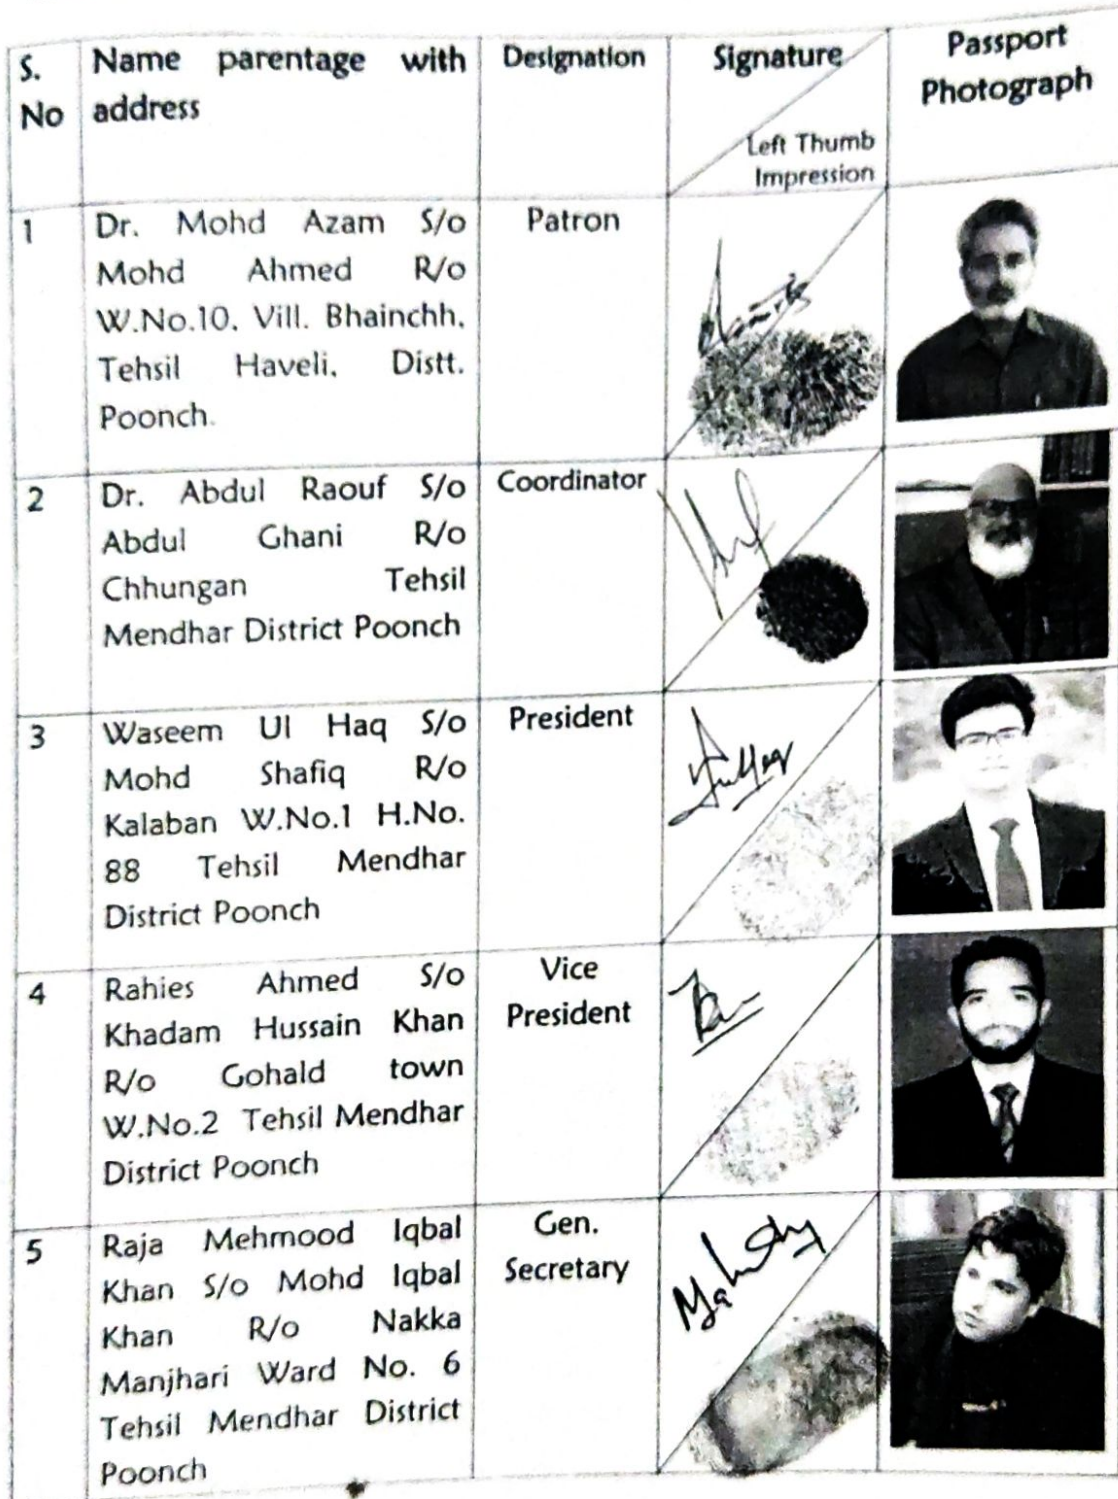 S. No
Name parentage with address
Designation
Signature
Left Thumb Impression
Passport Photograph
1
Dr. Mohd Azam S/o
Mohd Ahmed R/o
W.No.10, Vill. Bhainchh,
Tehsil Haveli, Distt.
Poonch.
Patron
2
Dr. Abdul Raouf S/o
Abdul Ghani R/o
Chhungan Tehsil
Mendhar District Poonch
Coordinator
3
Waseem Ul Haq S/o
Mohd Shafiq R/o
Kalaban W.No.1 H.No.
88 Tehsil Mendhar
District Poonch
President
4
Rahies Ahmed S/o
Khadam Hussain Khan
R/o Gohald town
W.No.2 Tehsil Mendhar
District Poonch
Vice
President
5
Raja Mehmood Iqbal
Khan S/o Mohd Iqbal
Khan R/o Nakka
Manjhari Ward No. 6
Tehsil Mendhar District
Poonch
Gen.
Secretary